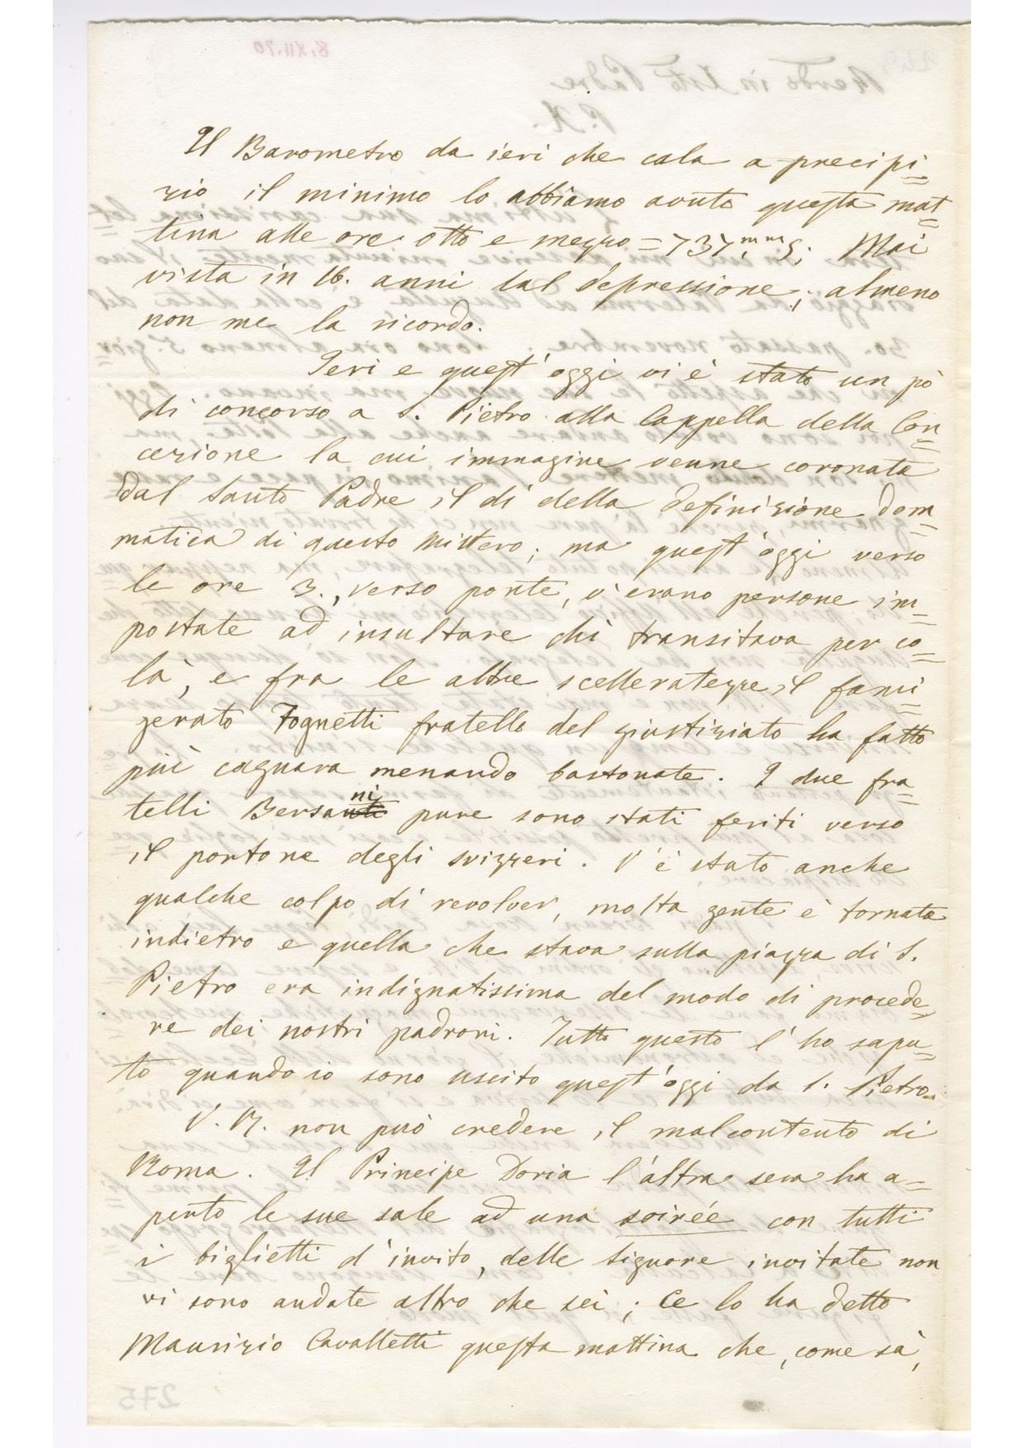 Il Barometro da ieri che cala a precipi=
zio il minimo lo abbiamo avuto questa mat=
tina alle ore otto e mezzo = 737,mm 5; Mai
vista in 16. anni tal depressione; almeno
non me la ricordo.
Ieri e quest'oggi vi è stato un pò
di concorso a S. Pietro alla Cappella della Con=
cezione la cui immagine venne coronata
dal Santo Padre il dì della definizione dom=
matica di questo Mistero; ma quest'oggi verso
le ore 3., verso ponte, v'erano persone im=
postate ad insultare chi transitava per co=
là, e fra le altre scelleratezze il fami=
gerato Tognetti fratello del giustiziato ha fatto
più cagnara menando bastonate. I due fra=
telli Bersani pure sono stati feriti verso
il portone degli svizzeri. V'è stato anche
qualche colpo di revolver, molta gente è tornata
indietro e quella che stava sulla piazza di S.
Pietro era indignatissima del modo di procede=
re dei nostri padroni. Tutto questo l'ho sapu=
to quando io sono uscito quest'oggi da S. Pietro.
V. R. non può credere il malcontento di
Roma. Il Principe Doria l'altra sera ha a=
perto le sue sale ad una soirée con tutti
i biglietti d'invito, delle Signore invitate non
vi sono andate altro che sei; Ce lo ha detto
Maurizio Cavalletti questa mattina che, come sà,